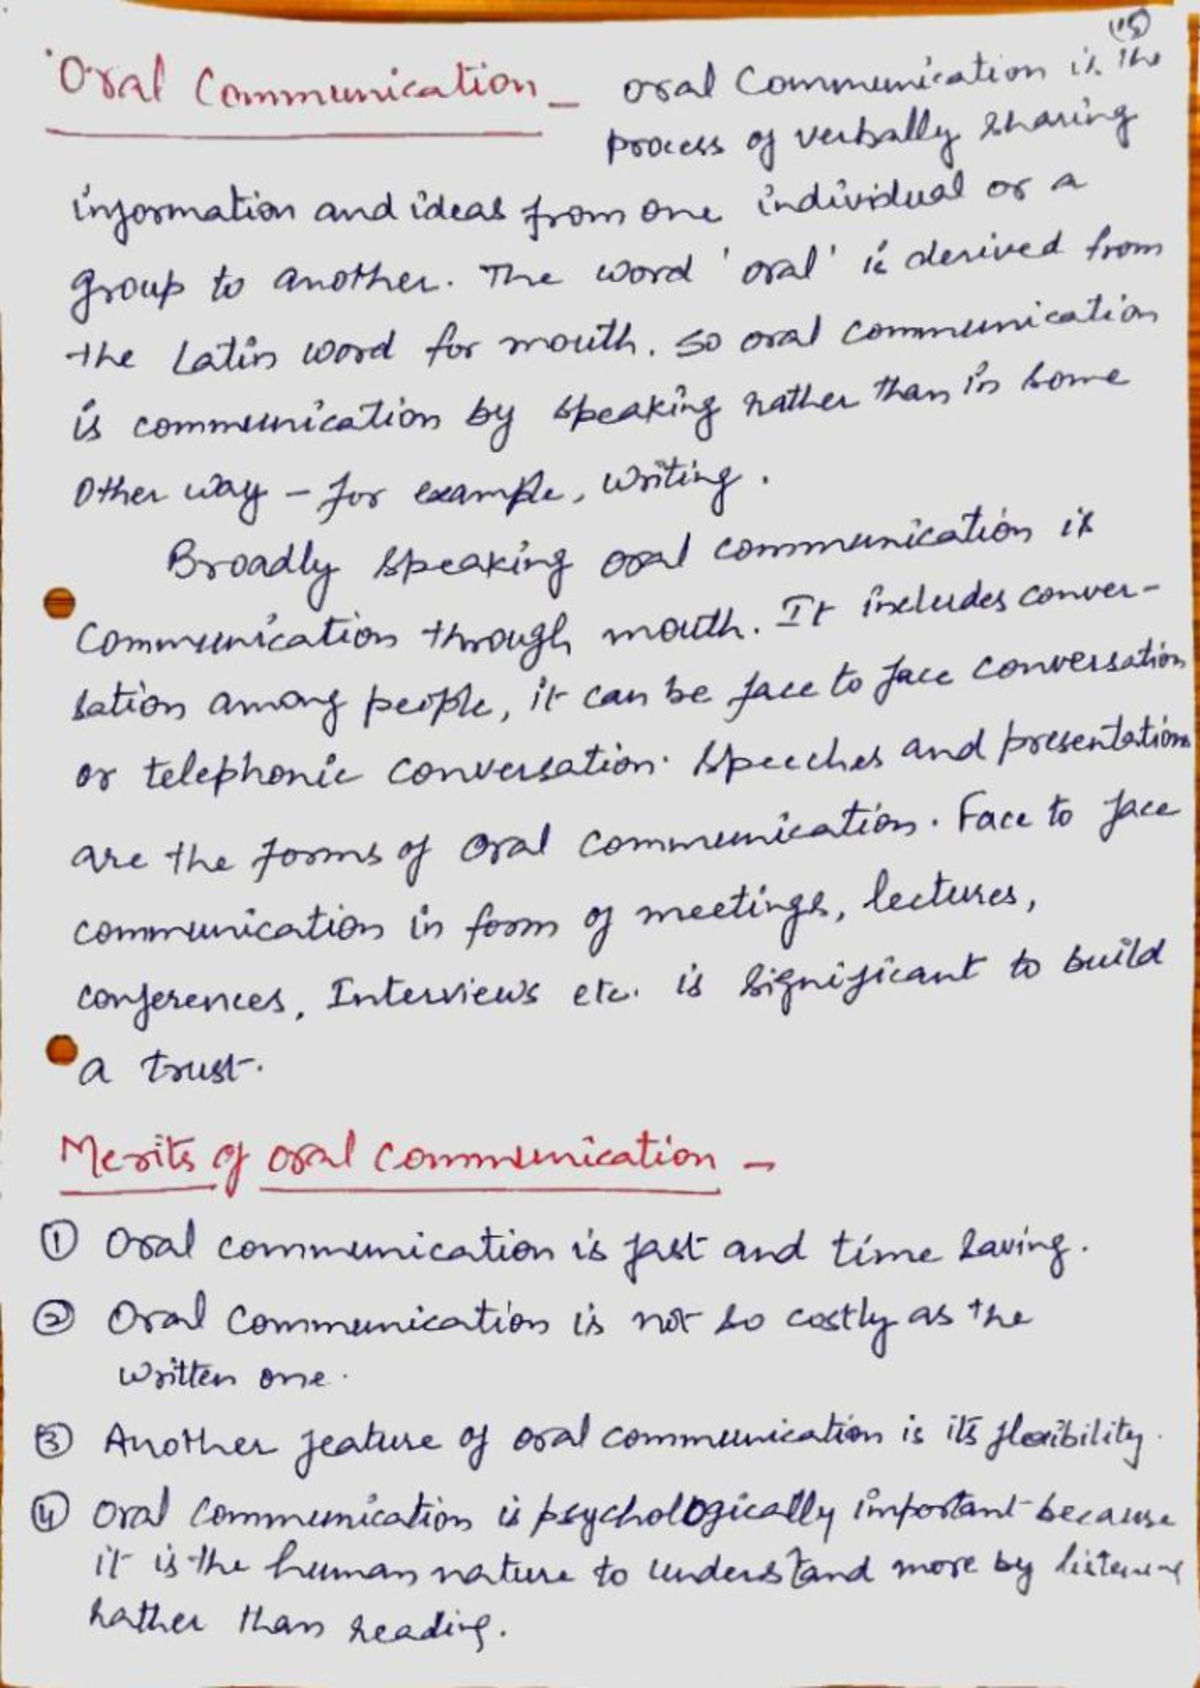 (15)
Oral Communication - Oral Communication is the
process of verbally sharing
information and ideas from one individual or a
group to another. The word 'oral' is derived from
the Latin word for mouth. So oral communication
is communication by speaking rather than in some
other way - for example, writing.
Broadly speaking oral communication is
communication through mouth. It includes conver-
sation among people, it can be face to face conversation
or telephonic conversation. Speeches and presentations
are the forms of oral communication. Face to face
communication in form of meetings, lectures,
conferences, Interviews etc. is significant to build
a trust.
Merits of oral communication -
① Oral communication is fast and time saving.
② Oral communication is not so costly as the
written one.
③ Another feature of oral communication is its flexibility.
④ Oral communication is psychologically important because
it is the human nature to understand more by listening
rather than reading.